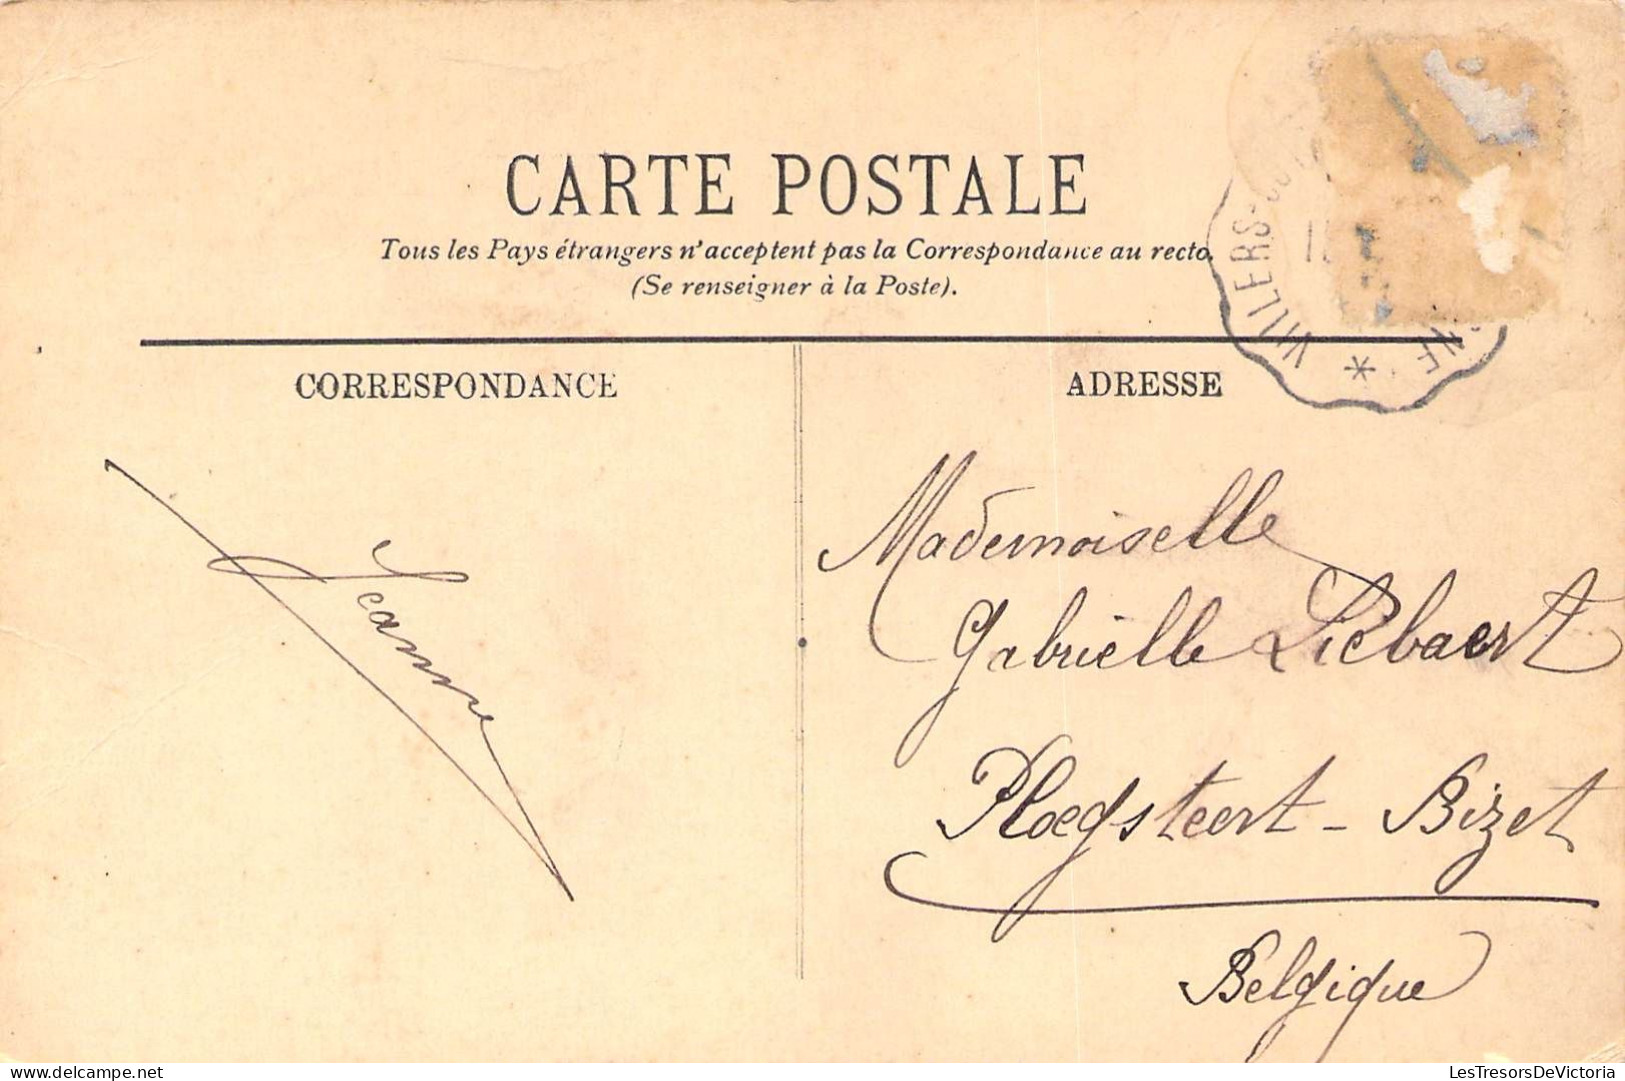 CARTE POSTALE
Tous les Pays étrangers n'acceptent pas la Correspondance au recto.
(Se renseigner à la Poste).
CORRESPONDANCE
ADRESSE
VILLERS-
Jeanne
Mademoiselle
Gabrielle Liebaert
Ploegsteert - Bizet
Belgique
LesTresorsDeVictoria